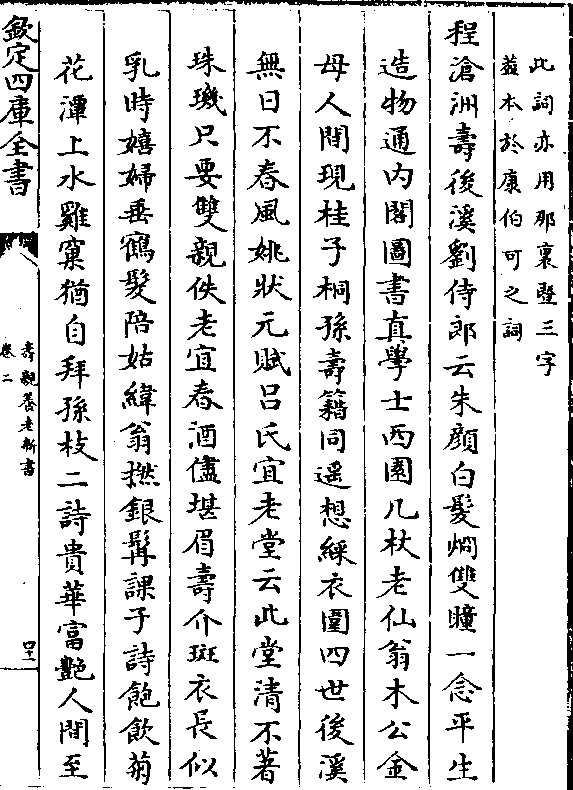 此詞亦用那裏暨三字
葢本於康伯可之詞
程滄洲壽後溪劉侍郎云朱顔白髮烱雙瞳一念平生
造物通内閣圖書真學士西園几杖老仙翁木公金
母人間現桂子桐孫壽籍同遥想綵衣圍四世後溪
無日不春風姚狀元賦吕氏宜老堂云此堂清不著
珠璣只要雙親佚老宜春酒儘堪眉壽介斑衣長似
乳時嬉婦垂鶴髮陪姑緯翁撚銀髯課子詩飽飲菊
花潭上水雞窠猶自拜孫枝二詩貴華富艷人間至
欽定四庫全書
壽親養老新書
卷二